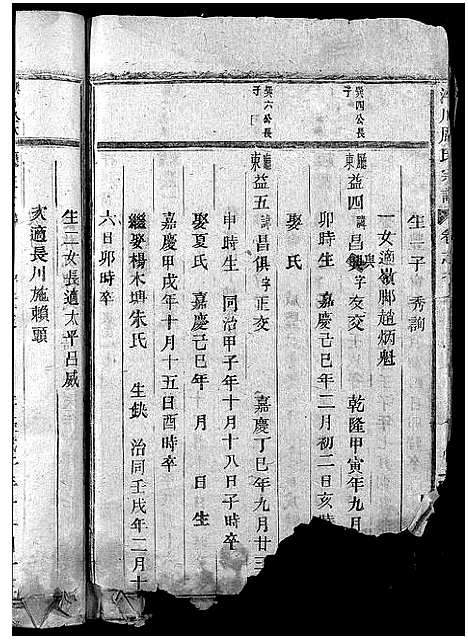 生三子 秀詢
一女適嶺腳趙炳魁
與四公長子 廳東 益四 諱昌興字友交 乾隆甲寅年九月
卯時生 嘉慶己巳年二月初二日亥時
娶 氏
與六公長子 廳東 益五 諱昌俱字正交 嘉慶丁巳年九月廿三
申時生 同治甲子年十月十八日子時卒
娶夏氏 嘉慶己巳年 月 日生
嘉慶甲戌年十月十五日酉時卒
繼娶楊木塘朱氏 生缺 治同壬戌年二月十
六日卯時卒
生二女長適太平呂威
次適長川施賴頭